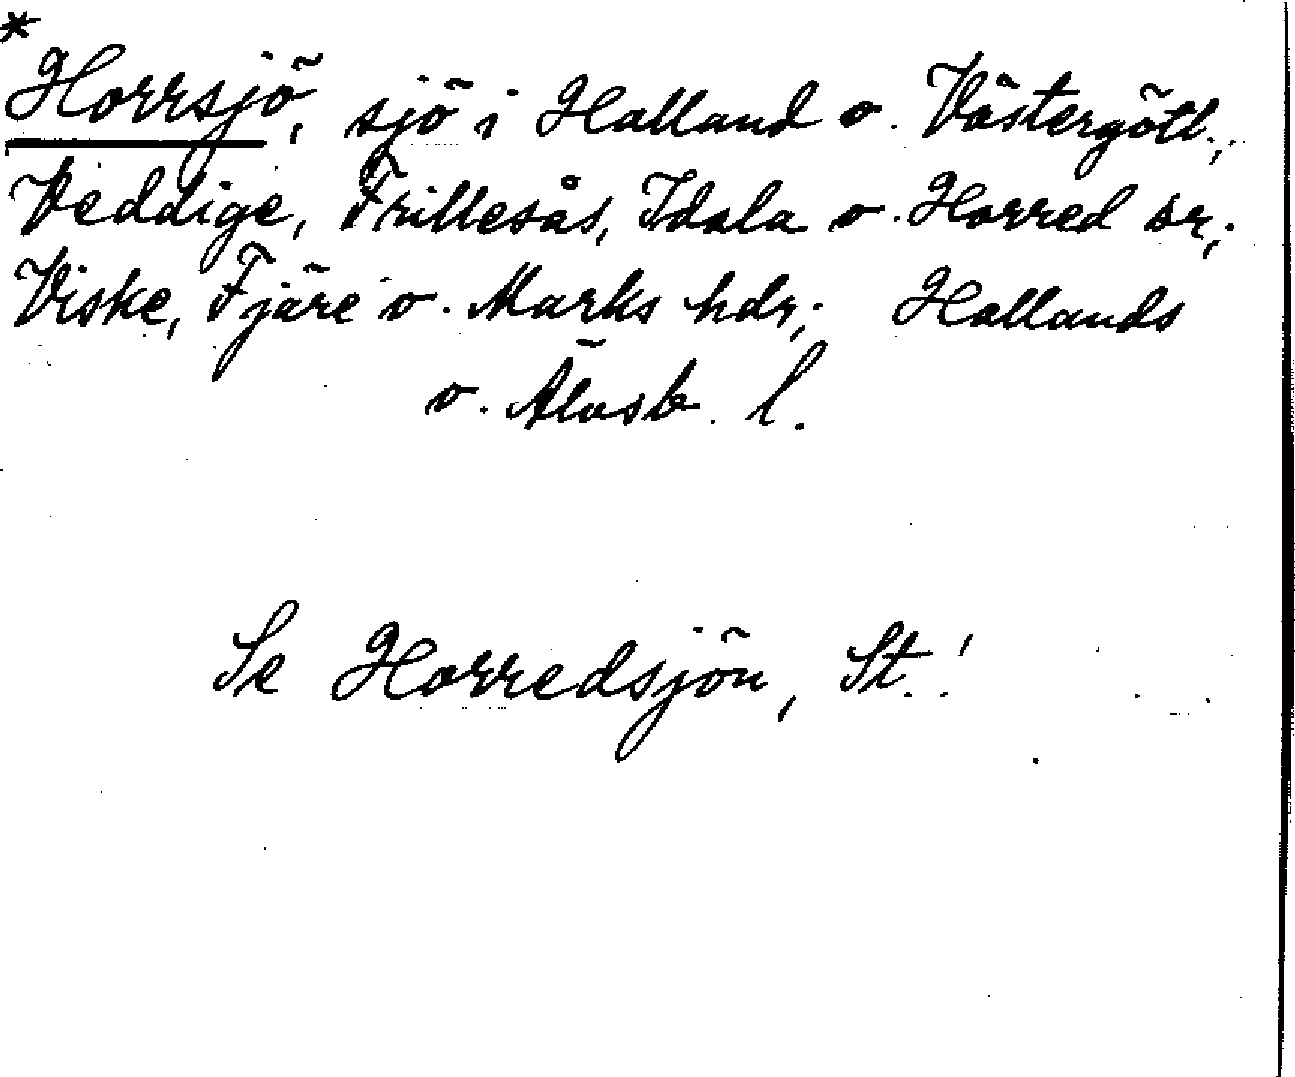 *
Horrsjö, sjö i Halland o. Västergötl.,
Veddige, Frillesås, Idala o. Horred sr,;
Viske, Fjäre o. Marks hdr,; Hallands
o. Älvsb. l.
Se Horredsjön, St.!